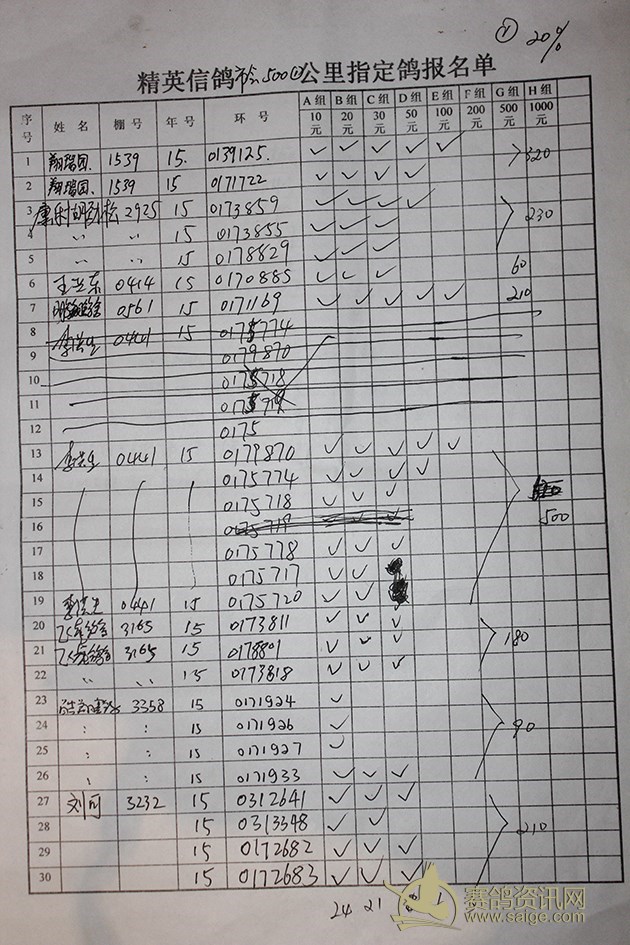 ① 20%
精英信鸽 500 公里指定鸽报名单
序号 姓名 棚号 年号 环号 A组10元 B组20元 C组30元 D组50元 E组100元 F组200元 G组500元 H组1000元
1 翔瑞园. 1539 15. 0139125. ✓ ✓ ✓ ✓ ✓ 320
2 翔瑞园. 1539 15 0171722 ✓ ✓ ✓ ✓
3 2925 15 0173859 ✓ ✓ ✓ ✓ 230
4 〃 〃 15 0173855 ✓ ✓ ✓
5 〃 〃 15 0178829 ✓ ✓ ✓
6 王兰东 0414 15 0170885 ✓ ✓ ✓ 60
7 0561 15 0171169 ✓ ✓ ✓ ✓ ✓ 210
8 0441 15 0175774
9 0179870
10 0175718
11
12 0175
13 0441 15 0179870 ✓ ✓ ✓ ✓ ✓
14 0175774 ✓ ✓ ✓ ✓
15 0175718 ✓ ✓ ✓
16 0175719 ✓ ✓ 500
17 0175778 ✓ ✓ ✓
18 0175717 ✓ ✓
19 0441 15 0175720 ✓ ✓
20 3165 15 0173811 ✓ ✓ ✓
21 3165 15 0178801 ✓ ✓ ✓ 180
22 〃 〃 15 0173818 ✓ ✓ ✓
23 3358 15 0171924 ✓
24 : : 15 0171926 ✓ 90
25 : : 15 0171927 ✓
26 15 0171933 ✓ ✓ ✓
27 刘可 3232 15 0312641 ✓ ✓ ✓
28 15 0313348 ✓ ✓ 210
29 15 0172682 ✓ ✓ ✓
30 15 0172683 ✓ ✓ ✓
24 21
赛鸽资讯网
www.saige.com